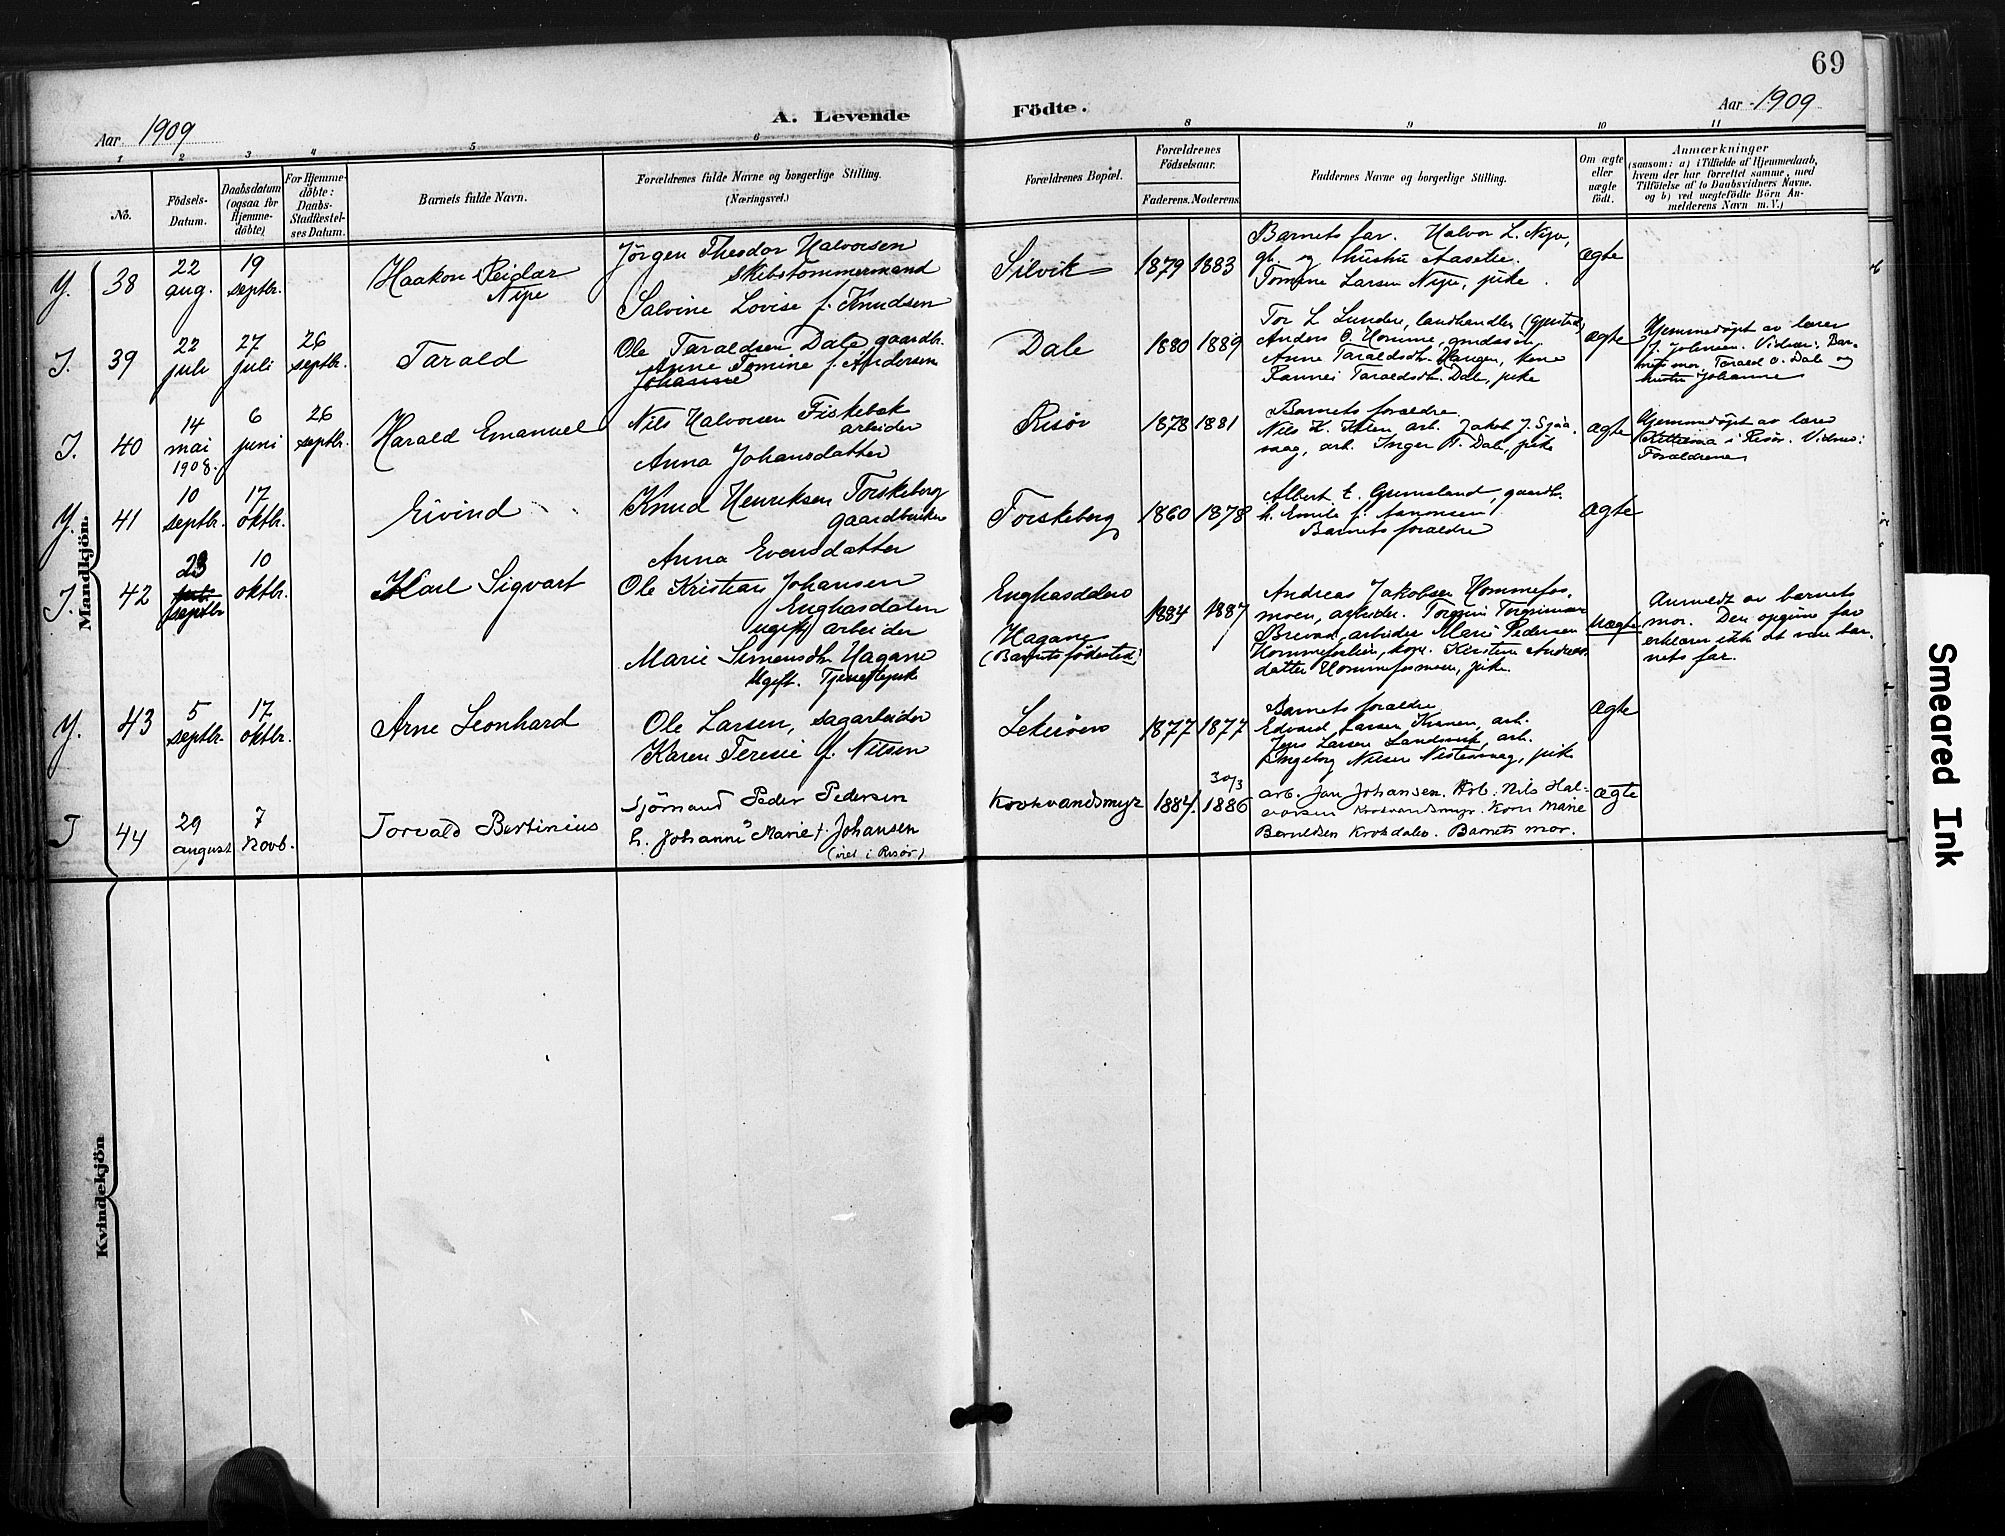 69
Aar 1909
A. Levende Födte.
Aar 1909
1 2 3 4 5 6 8 9 10 11
No.
Födsels-
Datum.
Daabsdatum
(ogsaa for
Hjemme-
döbte)
For Hjemme-
döbte:
Daabs-
Stadfæstel-
ses Datum.
Barnets fulde Navn.
Forældrenes fulde Navne og borgerlige Stilling.
(Næringsvei.)
Forældrenes Bopæl.
Forældrenes
Födselsaar.
Faderens. Moderens.
Faddernes Navne og borgerlige Stilling.
Om ægte
eller
uægte
födt.
Anmærkninger
(saasom: a) i Tilfælde af Hjemmedaab,
hvem der har forrettet samme, med
Tilföielse af to Daabsvidners Navne.
og b) ved uægtefödte Börn An-
melderens Navn m. V.)
Mandkjön.
Y. 38
22
aug.
19
septbr.
Haakon Reidar
Nipe
Jörgen Theodor Halvorsen
skibstømmermand
Salvine Lovise f. Knudsen
Silvik
1879 1883
Barnets far. Halvor L. Nipe,
gb. og hustru Aaselie.
Tomine Larsen Nipe, pike.
ægte
I. 39
22
juli
27
juli
26
septbr.
Tarald
Ole Taraldsen Dale gaardbr.
Anne Tomine f. Andersen
Johanne
Dale
1880 1889
Tor L Lunden, landhandler (Gjerstad)
Anders O. Homme, gaardss.
Anne Taraldsdtr. Haugen, kone
Rannei Taraldsdtr. Dale, pike
ægte
Hjemmedøpt av lærer
J. Johnsen. Vidner: Bar-
nets mor, Tarald O. Dale og
hustru Johanne
I. 40
14
mai
1908.
6
juni
26
septbr.
Harald Emanuel
Nils Halvorsen Fiskebæk
arbeider
Anna Johansdatter
Risør
1878 1881
Barnets forældre.
Nils H. arb. Jakob J.
vaag, arb. Inger T. Dale, pike
ægte
Hjemmedøpt av lærer
i Risør. Vidner:
Forældrene
Y. 41
10
septbr.
17
oktbr.
Eivind
Knud Henriksen Torskeberg
gaardbruker
Anna Evensdatter
Torskeberg
1860 1878
Albert E. Grimsland, gaardb.
h. Emilie f. Aanonsen
Barnets forældre
ægte
I. 42
23
septbr
10
oktbr.
Karl Sigvart
Ole Kristian Johansen
Enghasdalen
ugift, arbeider
Marie Simensdtr. Hagane
Ugift. Tjenestepike
Enghasdalen
Hagane
(Barnets fødested)
1884 1887
Andreas Jakobsen Hommefos-
moen, arbeider. Torgrim Torgrimsen
Brevad, arbeider Marie Pedersen
Hommefoslien, kone. Kirstine Andreas-
datter Hommefosmoen, pike.
Uægte
Anmeldt av barnets
mor. Den opgivne far
erklærer ikke at være bar-
nets far.
Y. 43
5
septbr.
17
oktbr.
Arne Leonhard
Ole Larsen, sagarbeider
Karen Teresie f. Nilsen
Lekerøen
1877 1877
Barnets forældre
Edvard Larsen Kranen, arb.
Jens Larsen Landsvik, arb.
Ingeborg Nilsen Nestenvaag, pike
ægte
I 44
29
august
7
Novb.
Torvald Bertinius
Sjömand Peder Pedersen
h. Johanne Marie f. Johansen
(viet i Risør)
Krokvandsmyr
1884.
30/3
1886
arb. Jan Johansen. Arb. Nils Hal-
vorsen Krokvandsmyr. Kone Marie
Berntsen Krokdalen. Barnets mor.
ægte
Kvindekjön
Smeared Ink